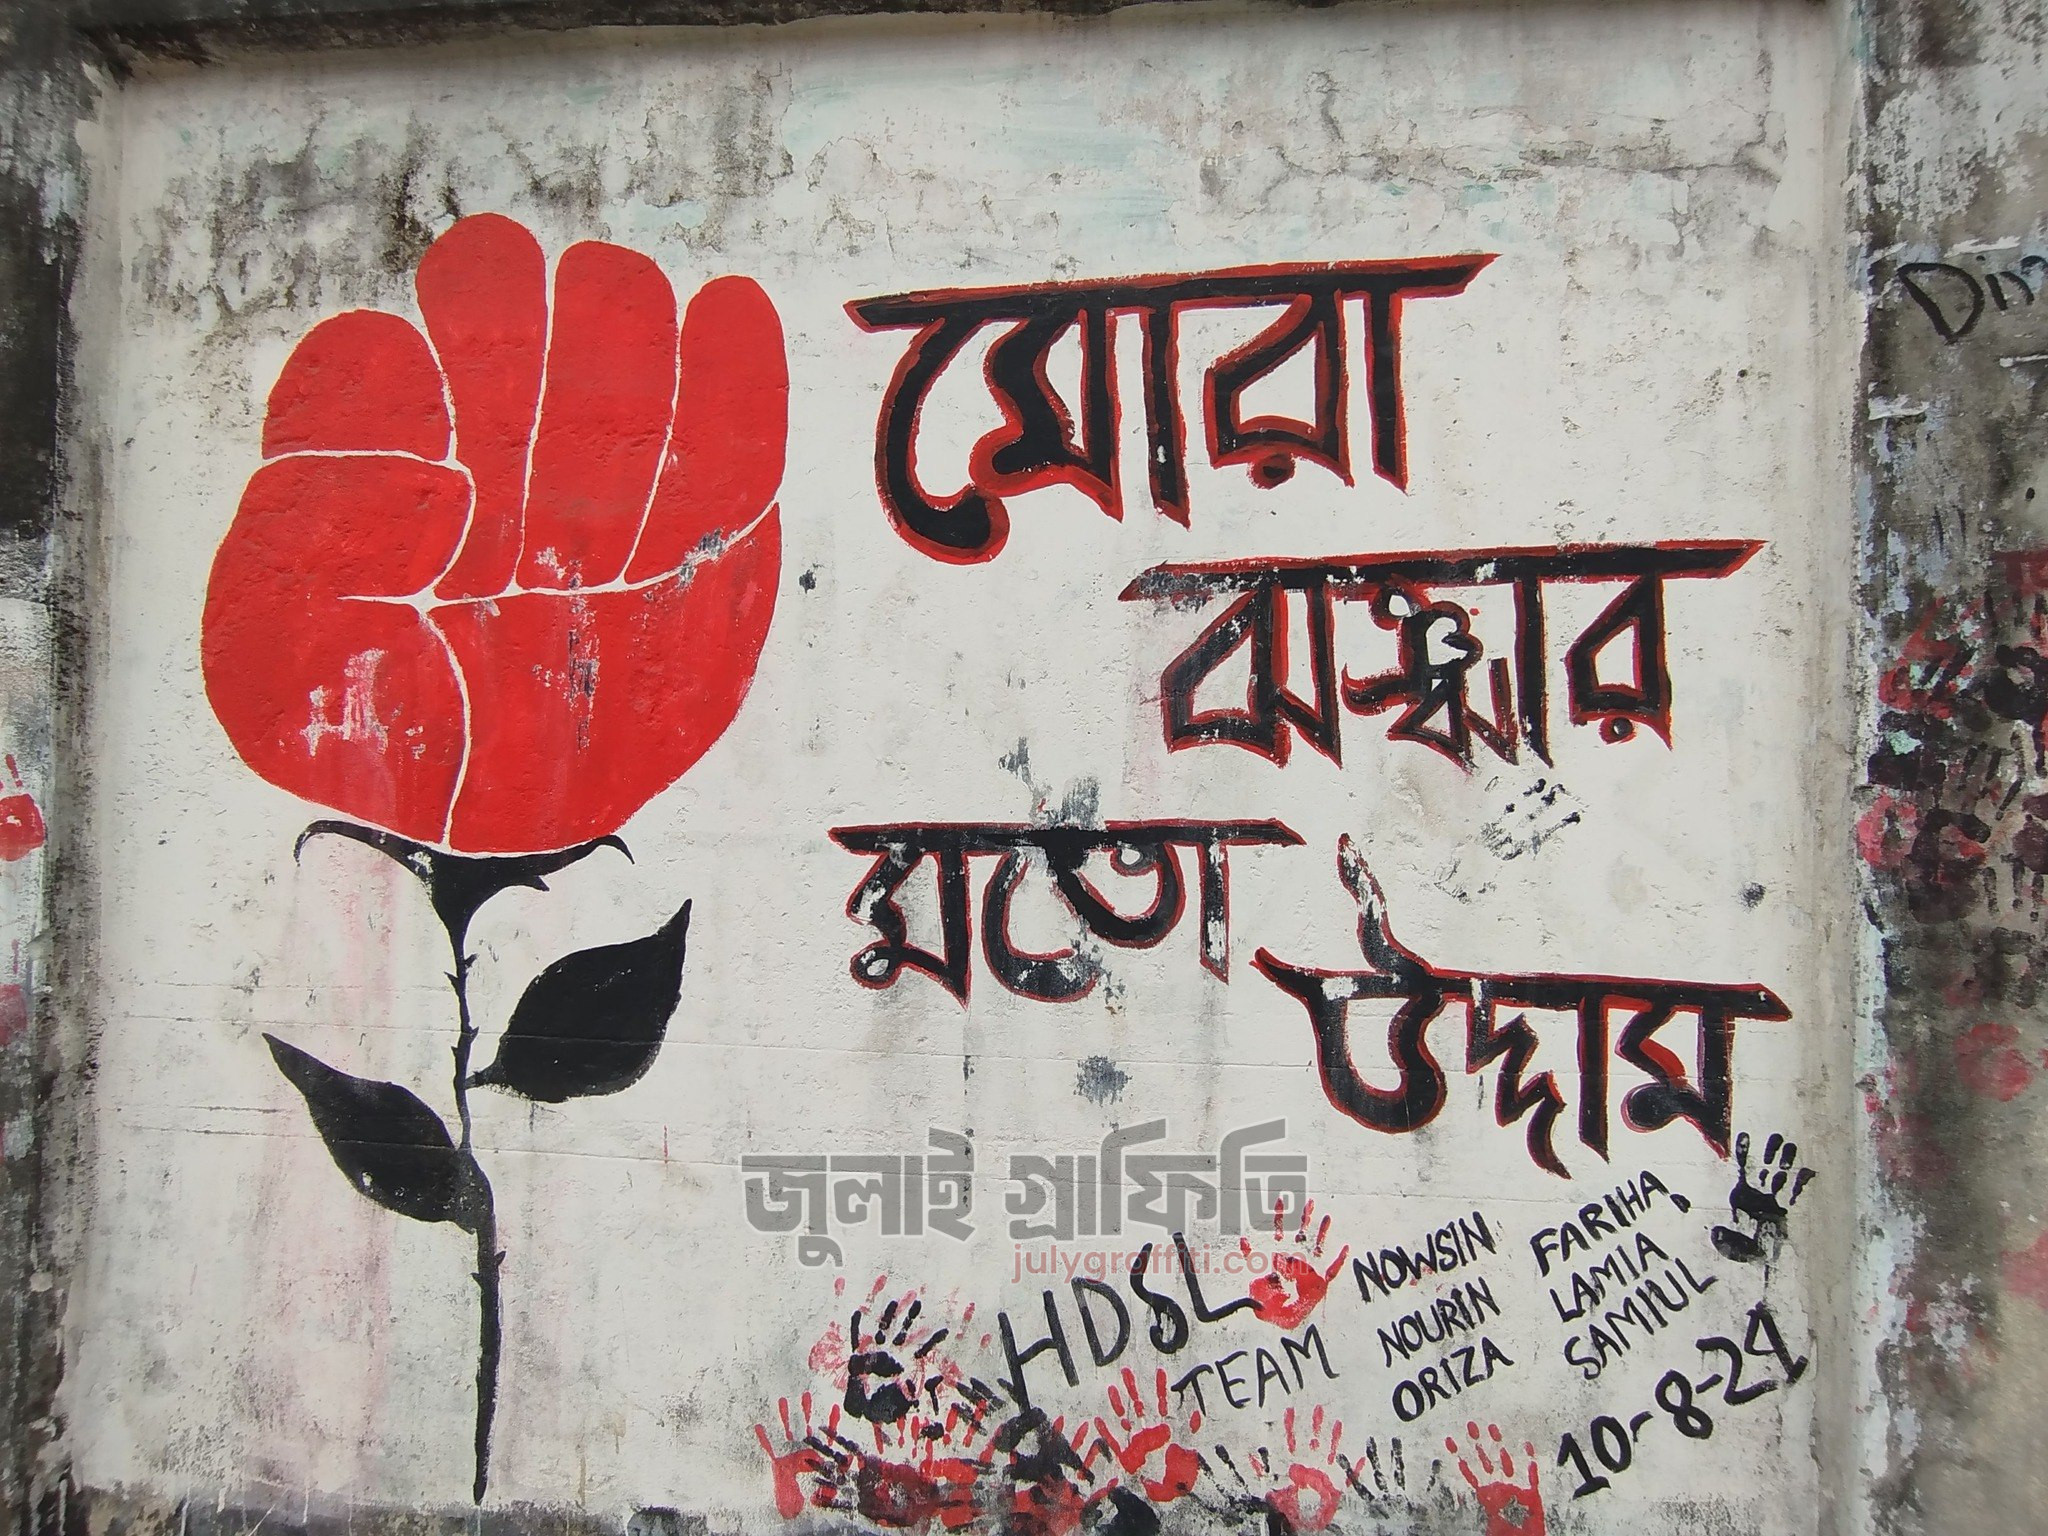 মোরা
ঝঞ্ঝার
মতো
উদ্দাম
জুলাই গ্রাফিতি
julygraffiti.com
HDSL
TEAM
NOWSIN
NOURIN
ORIZA
FARIHA
LAMIA
SAMIUL
10-8-24